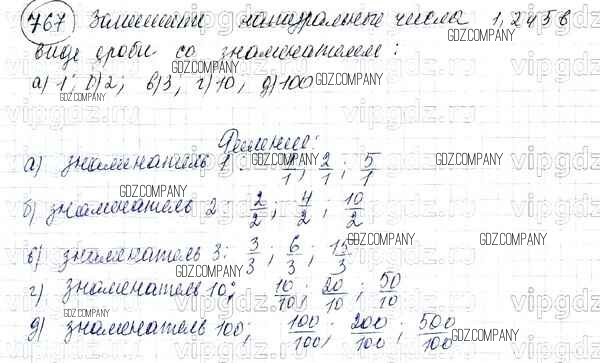 767 Запишите натуральные числа 1, 2 и 5 в
виде дроби со знаменателем:
а) 1; б) 2; в) 3, г) 10, д) 100
Решение:
а) знаменатель 1: 1/1; 2/1; 5/1
б) знаменатель 2: 2/2; 4/2; 10/2
в) знаменатель 3: 3/3; 6/3; 15/3
г) знаменатель 10; 10/10; 20/10; 50/10
д) знаменатель 100; 100/100; 200/100; 500/100
GDZ.COMPANY
vipgdz.ru